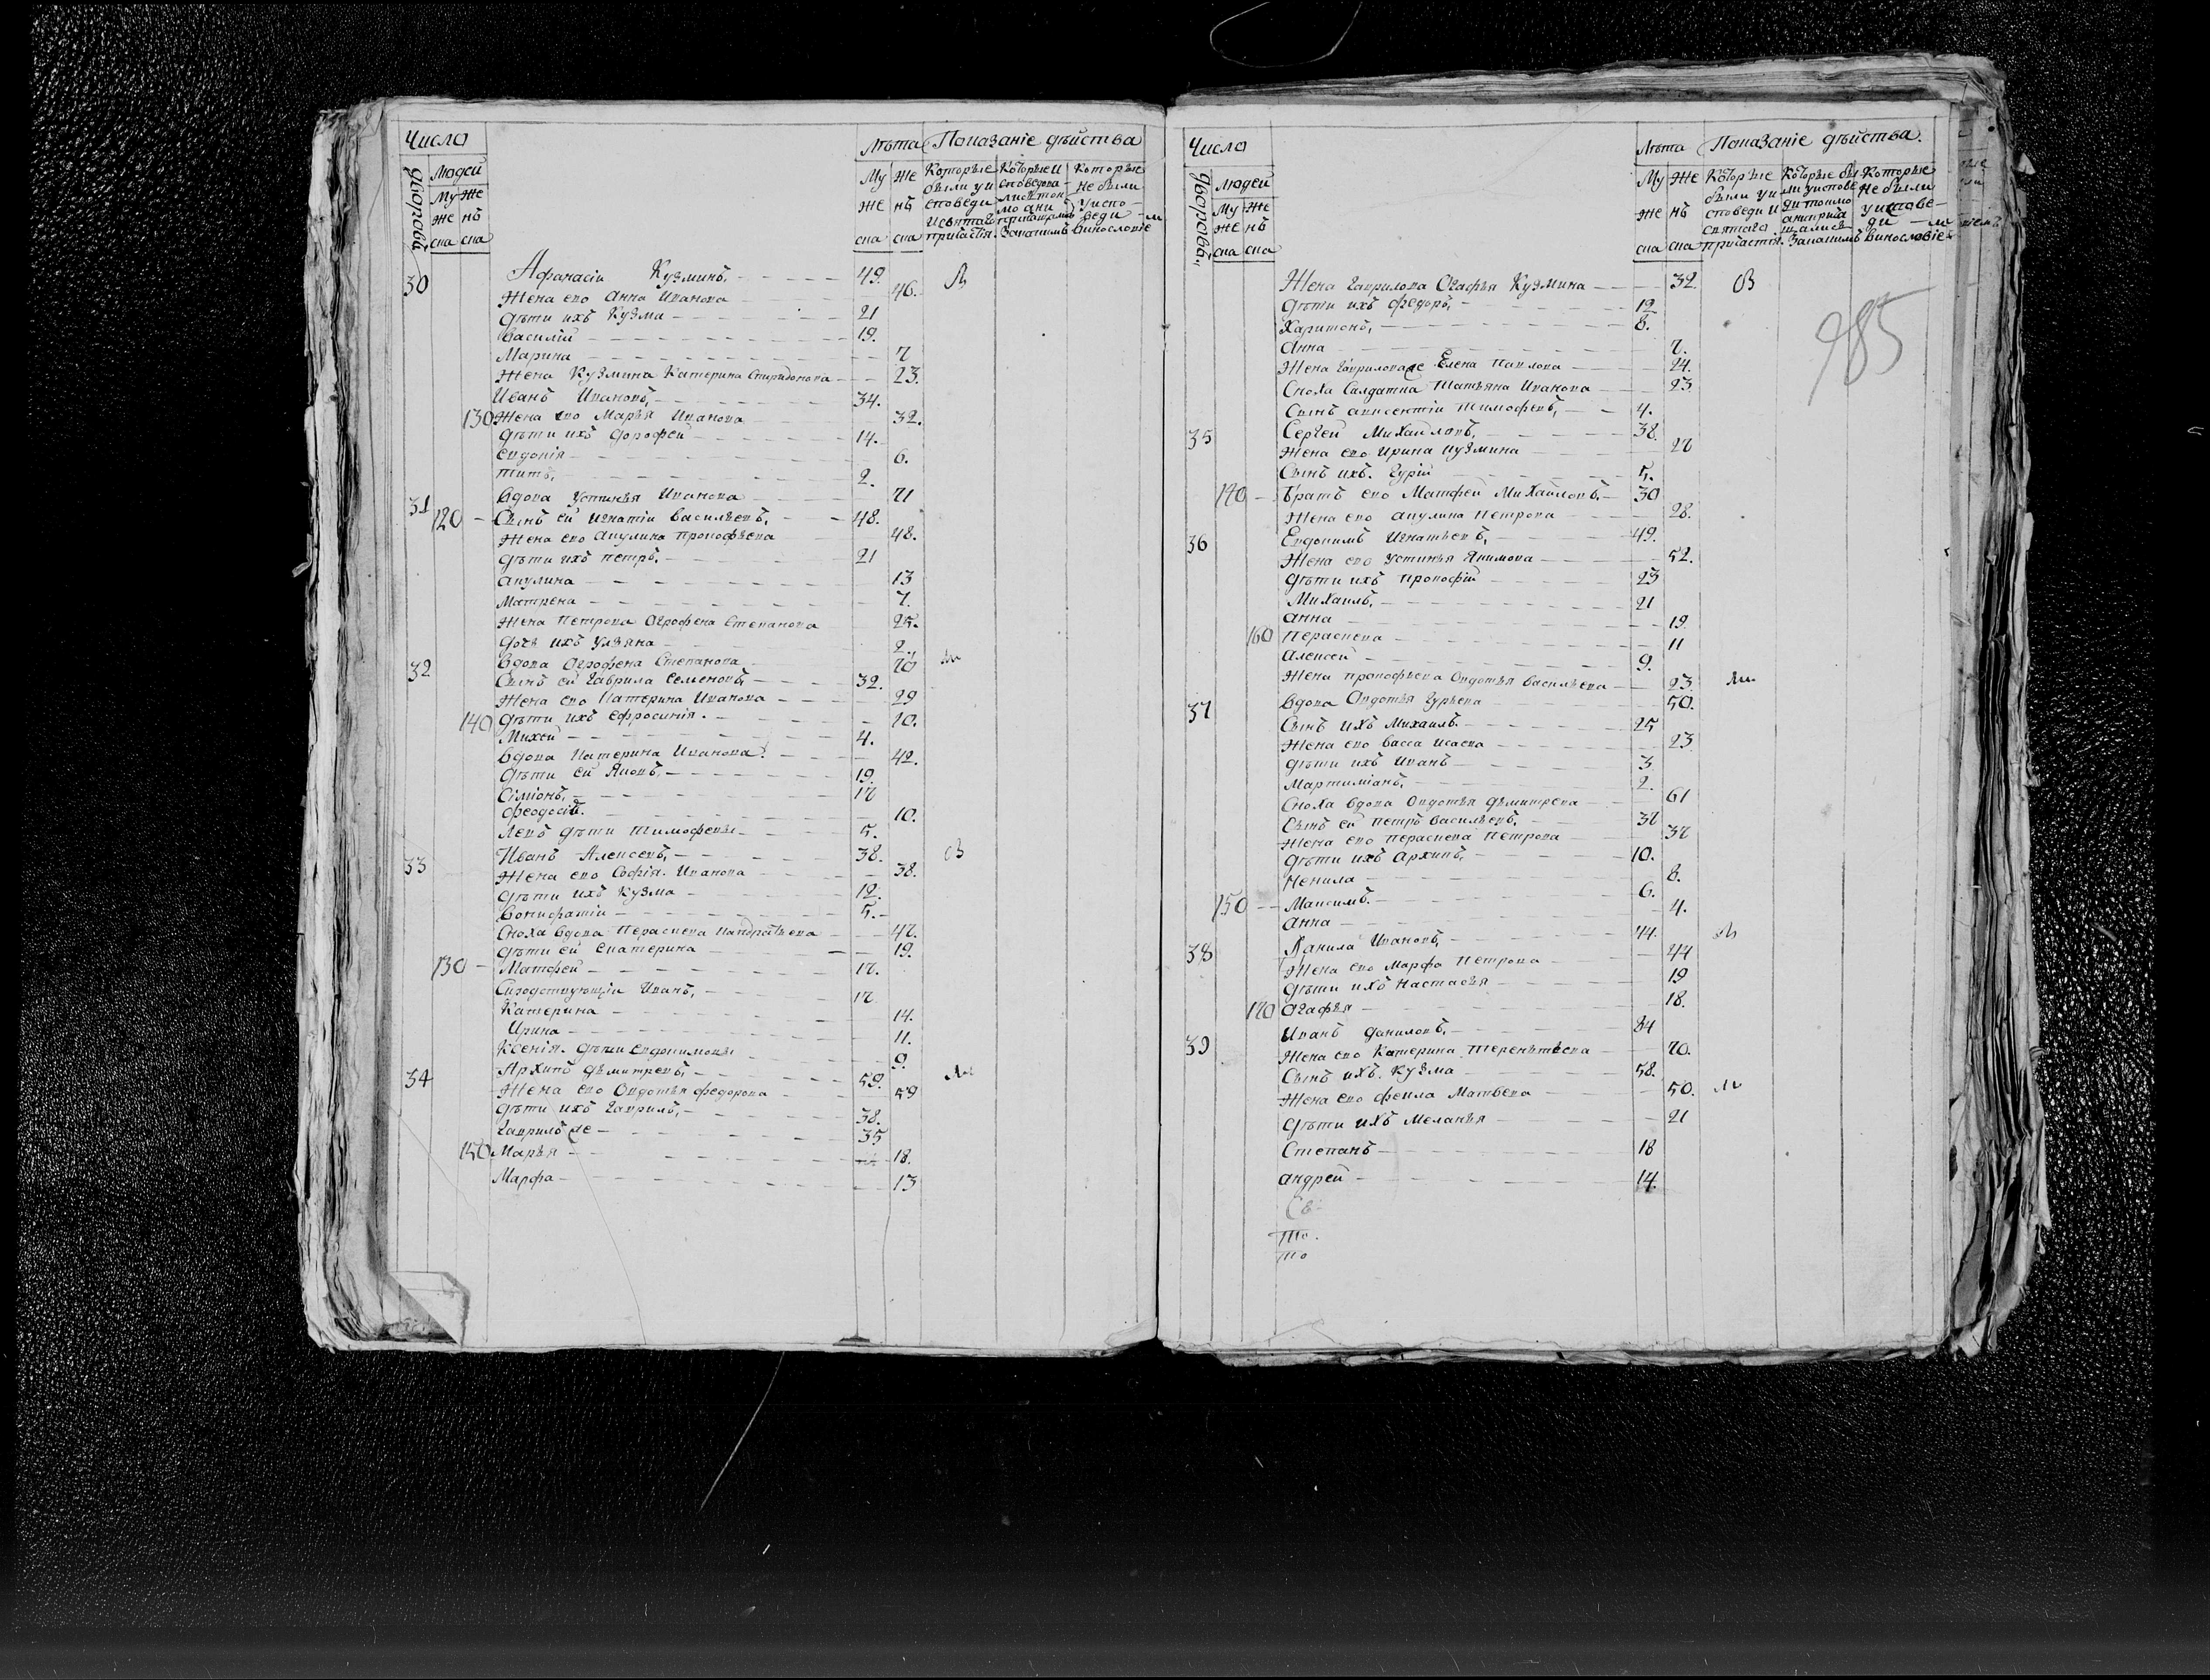 Число
Лѣта Показанїе дѣйства
дворовъ Людей
Му Же
же нѣ
ска ска
Му Же
же нѣ
ска ска
Которые были у исповеди и святаго причастїя.
Которые исповедались токмо а не причащались Закакимъ
Которые не были у исповеди Винословїе
30 Афанасїи Кузминъ. 49.
Жена ево Анна Иванова 46.
Дѣти ихъ Кузма 21
Василїй 19.
Марина 7
Жена Кузмина Катерина Спиридонова 23.
Иванъ Ивановъ, 34.
130 Жена ево Марья Иванова 32.
Дѣти ихъ Дорофей 14.
Евдокїя 6.
Титъ, 2.
31 Вдова Устинья Иванова 71
120 Сынъ ей Игнатїи Васильевъ, 48.
Жена ево Акулина Прокофьева 48.
Дѣти ихъ петръ. 21
Акулина 13
Матрена 7.
Жена петрова Огрофена Степанова 25.
Дочь ихъ Ульяна 2.
32 Вдова Огрофена Степанова 70
Сынъ ей Гаврила Семеновъ, 32.
Жена ево Катерина Иванова 29
140 Дѣти ихъ Ефросинїя. 10.
Михей 4.
Вдова Катерина Иванова. 42.
Дѣти ей Яковъ, 19.
Сїмїонъ, 17
Феодосїй. 10.
Левъ дѣти Тимофевы 5.
33 Иванъ Алексевъ, 38.
Жена ево Софїя. Иванова 38.
Дѣти ихъ Кузма 12.
Вонифатїи 5.
Сноха вдова Пераскева Кандратьева 47.
Дѣти ей Екатерина 19.
130 Матфей 17.
Сиродствующїи Иванъ, 17
Катерина 14.
Ирина 11.
Ксенїя. дѣти Евдокимовы 9.
34 Архипъ Дѣмитревъ, 59.
Жена ево Овдотья Федорова 59
Дѣти ихъ Гаврилъ, 38.
Гаврилъ же 35
150 Марья 18.
Марфа 13
Число
Лѣта Показанїе дѣйства.
дворовъ. Людей
Му Же
же нѣ
ска ска
Му Же
же нѣ
ска ска
Которые были у исповеди и святаго причастїя.
Которые были у исповеди токмо а не причащались Закакимъ
Которые не были у исповеди Винословїе
Жена Гаврилова Огафья Кузмина 32.
985
Дѣти ихъ Федоръ, 12
Харитонъ, 8.
Анна 7.
Жена Гаврилова же Елена Павлова 24.
Сноха Салдатка Татьяна Иванова 23
Сынъ авксентїи Тимофевъ, 4.
35 Сергей Михайловъ, 38.
Жена ево Ирина Кузмина 27
Сынъ ихъ. Гурїй 5.
140 Братъ ево Матфей Михайловъ. 30
Жена ево акулина Петрова 28.
36 Евдокимъ Игнатьевъ, 49.
Жена ево Устинья Якимова 52.
Дѣти ихъ Прокофїй 23
Михаилъ, 21
Анна 19
160 Пераскева 11
Алексей 9.
Жена прокофьева Овдотья Васильева 23.
37 Вдова Овдотья Гурьева 50.
Сынъ ихъ Михаилъ. 25
Жена ево Васса Исаева 23
Дѣти ихъ Иванъ 3
Мартимїанъ, 2.
Сноха Вдова Овдотья Дѣмитрева 61
Сынъ ей петръ Васильевъ, 37
Жена ево пераскева Петрова 37
Дѣти ихъ Архипъ, 10.
Ненила 8.
150 Максимъ. 6.
Анна 4.
38 Данила Ивановъ, 44.
Жена ево Марфа Петрова 44
Дѣти ихъ Настасья 19
170 Огафья 18.
39 Иванъ Даниловъ, 84
Жена ево Катерина Терентьева 70.
Сынъ ихъ. Кузма 58.
Жена ево Фекла Матвева 50.
Дѣти ихъ Меланья 21
Степанъ 18
Андрей 14.
Св
То.
То